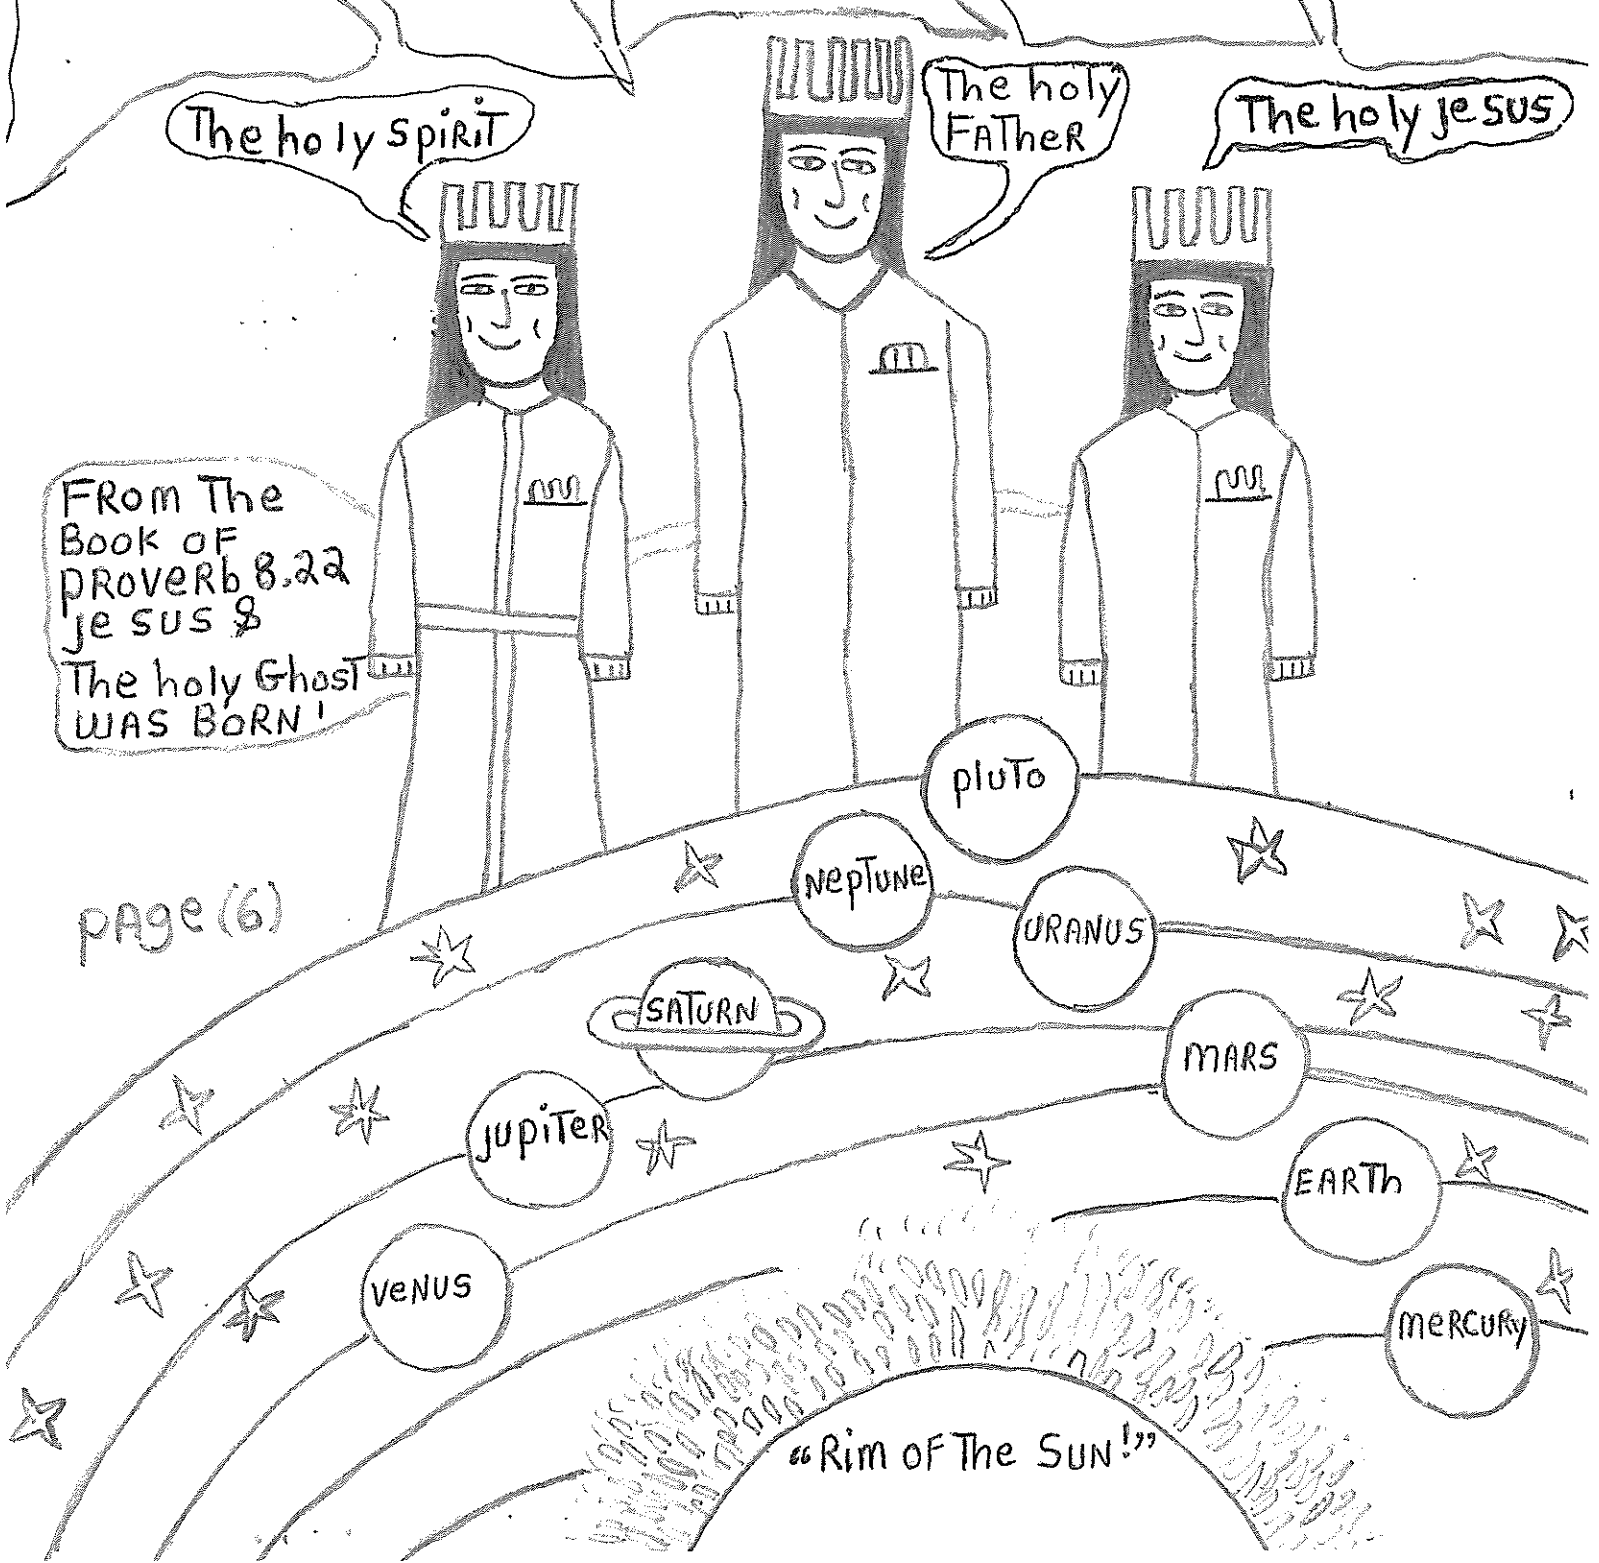 The holy SpiRiT
The holy
FATheR
The holy jesus
FRom The
Book oF
pRoveRb 8.22
jesus &
The holy GhosT
WAS BoRN!
pluTo
NepTuNe
URANUS
pAge (6)
SATURN
mARS
jupiTeR
EARTh
VeNUS
meRCURy
“Rim oF The SUN!”